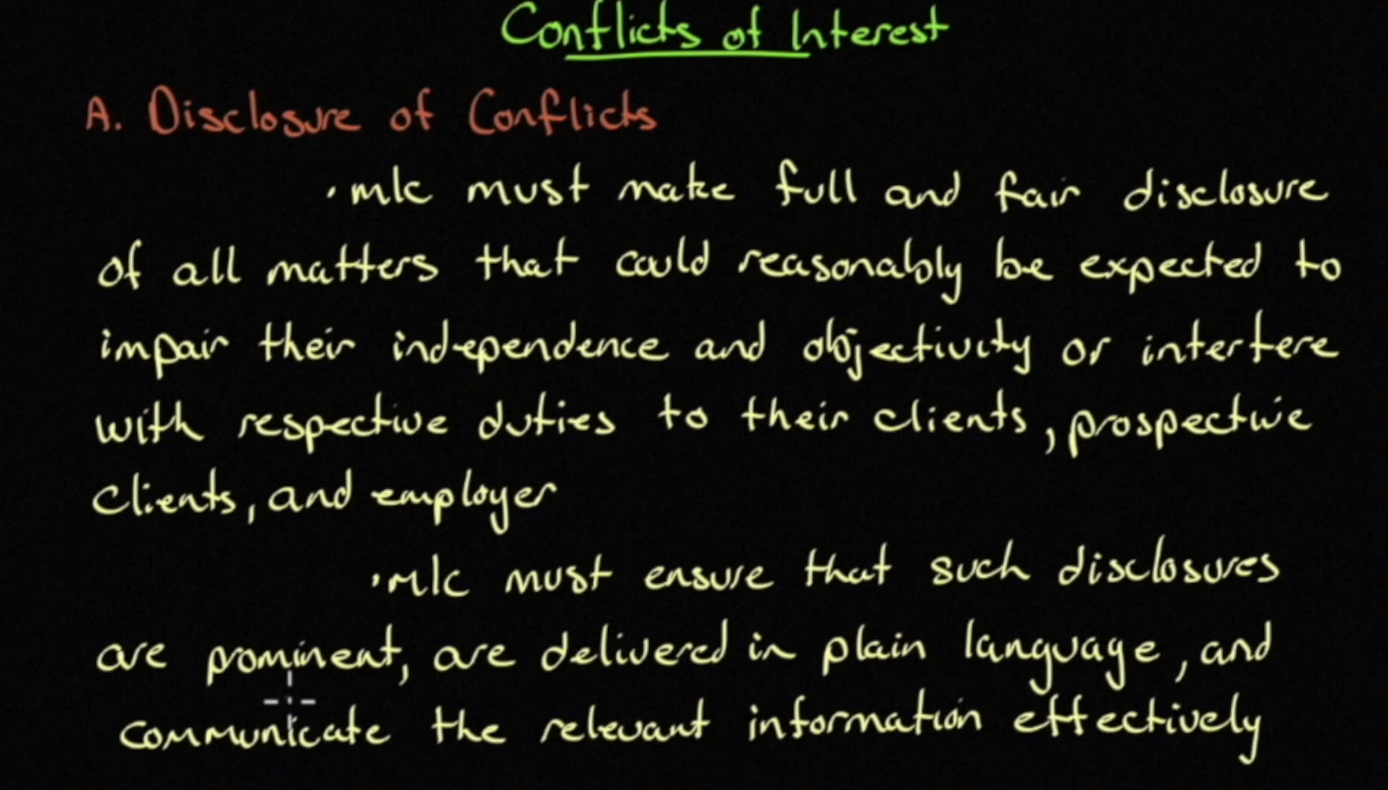 Conflicts of Interest
A. Disclosure of Conflicts
· m|c must make full and fair disclosure
of all matters that could reasonably be expected to
impair their independence and objectivity or interfere
with respective duties to their clients, prospective
clients, and employer
· M|c must ensure that such disclosures
are prominent, are delivered in plain language, and
communicate the relevant information effectively